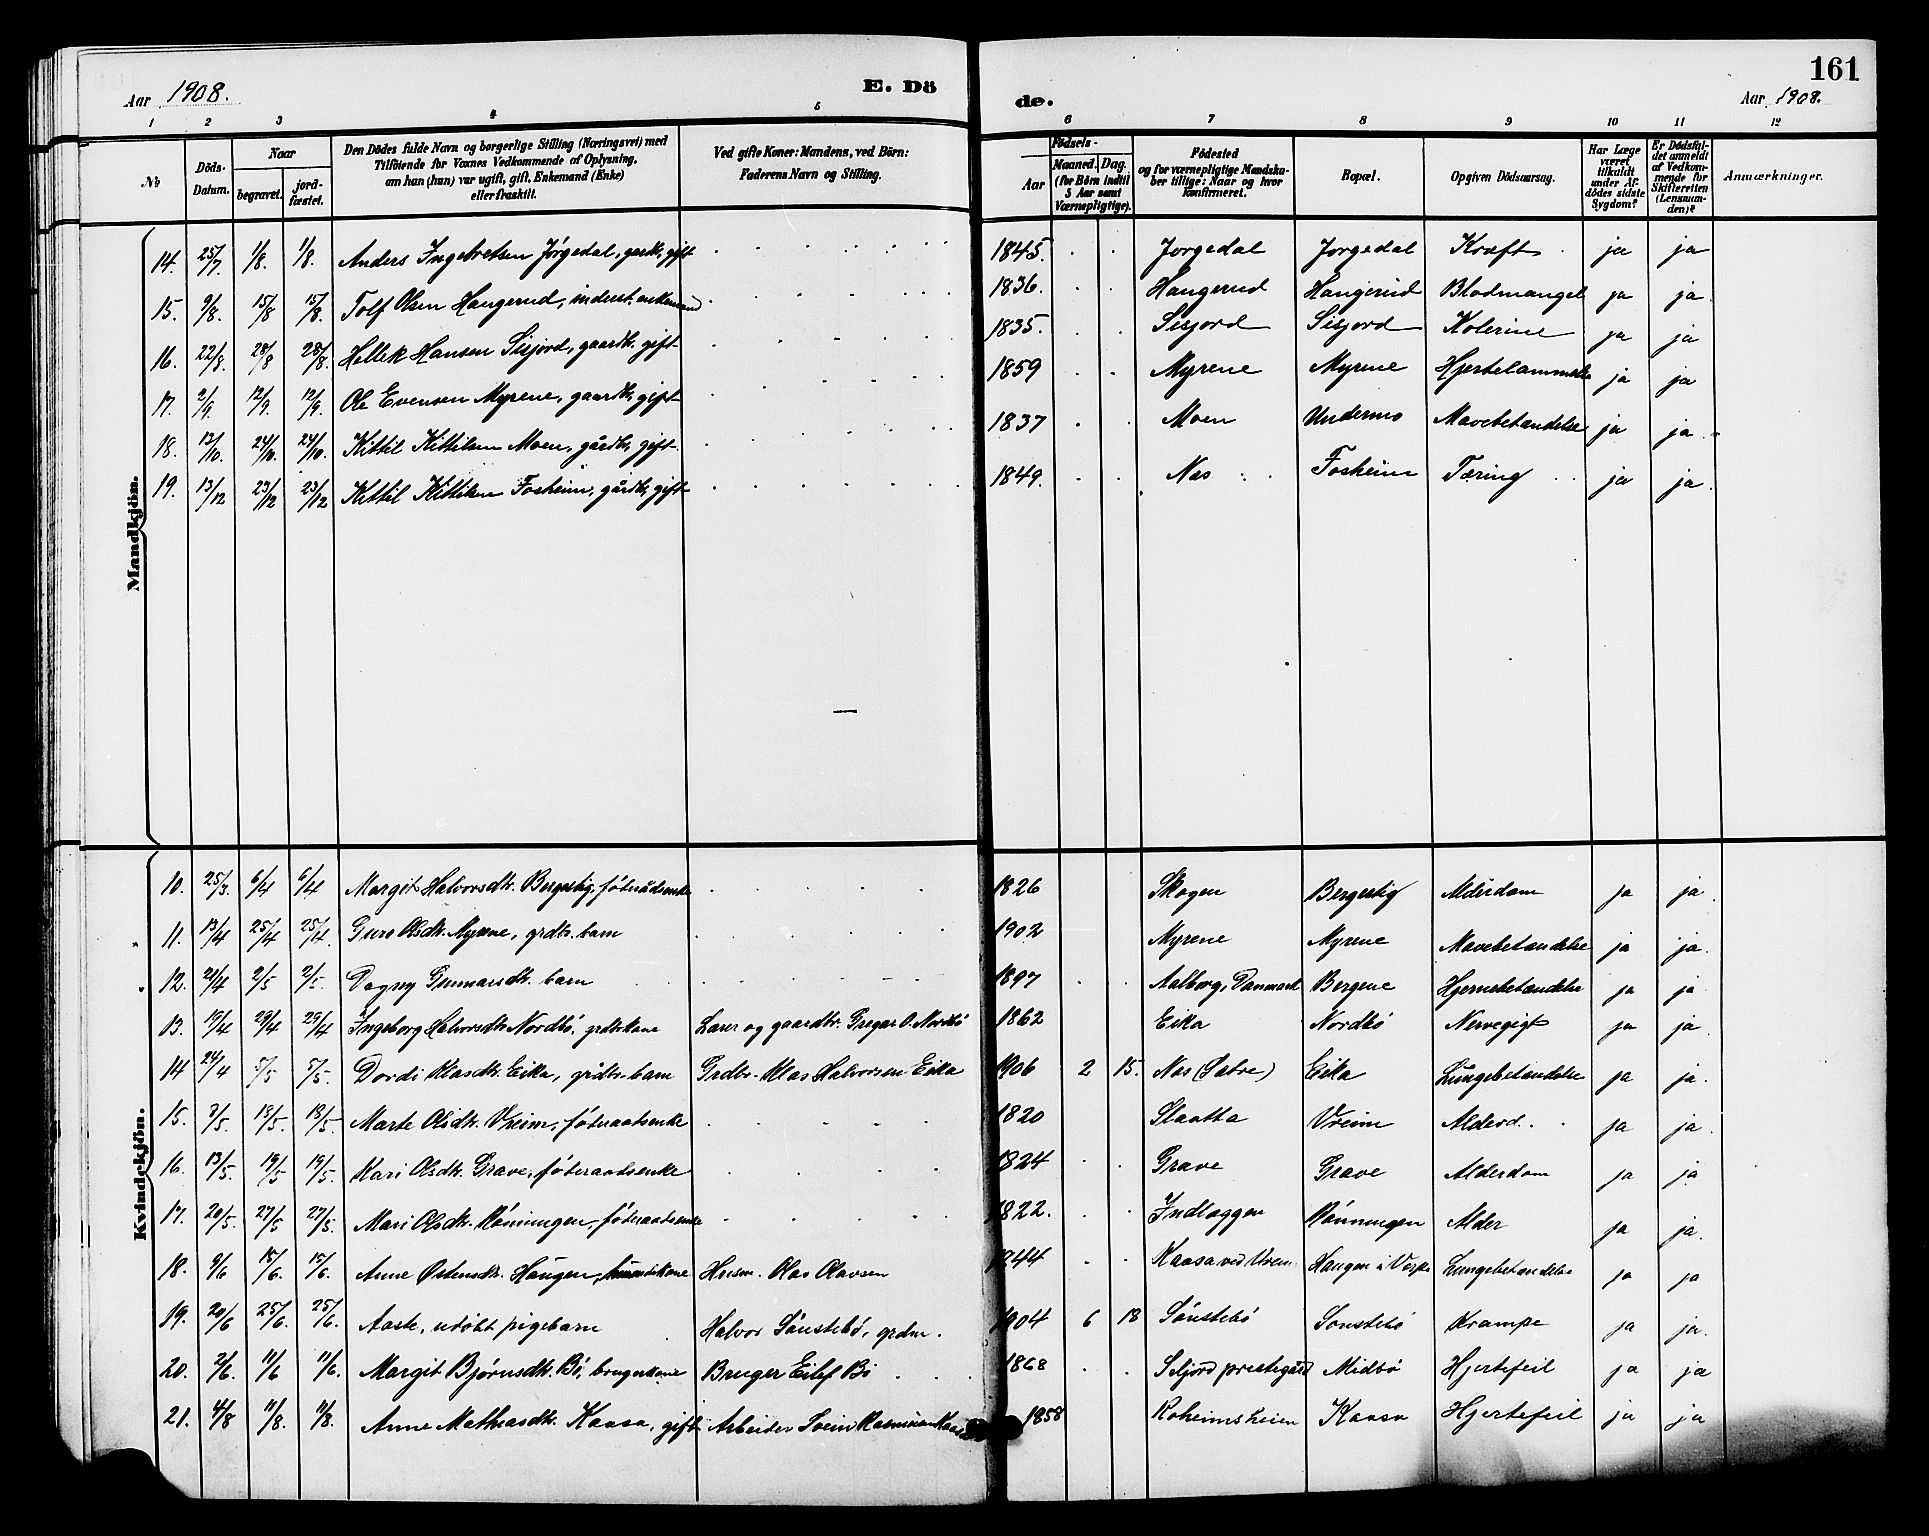 161
Aar 1908. E. Dö de. Aar 1908.
1 2 3 4 5 6 7 8 9 10 11 12
No
Döds-Datum.
Naar
begravet.
jord-fæstet.
Den Dödes fulde Navn og borgerlige Stilling (Næringsvei) med
Tilföiende for Voxnes Vedkommende af Oplysning,
om han (hun) var ugift, gift, Enkemand (Enke)
eller fraskilt.
Ved gifte Koner: Mandens, ved Börn:
Faderens Navn og Stilling.
Födsels-
Aar
Maaned. Dag.
(for Börn indtil
5 Aar samt
Værnepligtige).
Födested
og for værnepligtige Mandska-
ber tillige: Naar og hvor
konfirmeret.
Bopæl.
Opgiven Dödsaarsag.
Har Læge
været
tilkaldt
under Af-
dödes sidste
Sygdom?
Er Dödsfal-
det anmeldt
af Vedkom-
mende for
Skifteretten
(Lensman-
den)?
Anmærkninger.
Mandkjön.
14. 25/7 1/8. 1/8. Anders Ingebretsen Jörgedal, gardb, gift 1845. Jorgedal Jorgedal Kræft ja ja
15. 9/8. 15/8 15/8. Tolf Olsen Haugerud, inderst. enkemand 1836. Haugerud Haugerud Blodmangel ja ja.
16. 22/8. 28/8 28/8. Hellek Hansen Sisjord, gaardb. gift 1835. Sisjord Sisjord Kolerine ja ja
17. 2/9 12/9. 12/9. Ole Evensen Myrene, gaardb, gift 1859 Myrene Myrene Hjertelammelse ja ja
18. 12/10. 24/10. 24/10. Kittil Kittilsen Moen, gårdb, gift 1837 Moen Undermo Mavebetændelse ja ja.
19. 13/12 23/12 23/12 Kittil Kittilsen Fosheim, gårdb, gift 1849. Nas Fosheim Tæring ja ja.
Kvindekjön.
10. 25/3. 6/4 6/4 Margit Halvorsdtr. Bergestig, föderådsenke 1826 Skogen Bergestig Alderdom ja ja.
11. 13/4 25/4 25/4. Guro Olsdtr. Myrene, grdbr. barn 1902 Myrene Myrene Mavebetændelse ja ja.
12. 21/4 2/5 2/5. Dagny Gunnarsdtr. barn 1897 Aalborg, Danmark Bergene Hjernebetændelse ja ja
13. 19/4 29/4 29/4 Ingeborg Halvorsdtr Nordbö, grdbrkone Lærer og gaardbr. Gregar O. Nordbö 1862 Eika Nordbö Nervegigt ja ja.
14 24/4 5/5 5/5. Dordi Klasdtr. Eika, grdbr. barn Grdbr. Klas Halvorsen Eika 1906 2 15. Nas (Sætre) Eika Lungebetændelse ja ja.
15. 7/5. 18/5. 18/5. Marte Olsdtr. Vreim, föderaadsenke 1820 Slaatta Vreim Alderd. ja ja.
16. 13/5. 19/5 19/5. Kari Olsdtr. Grave, föderaadsenke 1824 Grave Grave Alderdom ja ja
17. 20/5. 27/5 27/5. Mari Olsdtr. Rönningen, föderaadsenke 1822. Indlæggen Rönningen Alder ja ja.
18. 9/6 15/6. 15/6. Anne Östensdtr. Haugen, Husm. Olav Olavsen 1844 Kaasa ved Vreim Haugen i Lungebetændelse ja ja
19. 20/6 25/6. 25/6. Aaste, udöbt pigebarn Halvor Sönstebö, grdm. 1904 6 18 Sönstebö Sonstebö Krampe ja ja.
20. 2/6. 11/6 11/6. Margit Björnsdtr. Bö, brugerkone Bruger Eilef Bö 1868 Seljord prestegård Midbö Hjertefeil ja ja
21. 4/8 11/8. 11/8. Anne Mathæasdtr. Kaasa, gift Arbeider Svein Rasmusen Kaasa 1858 Roheimsheien Kaasa Hjertefeil ja ja